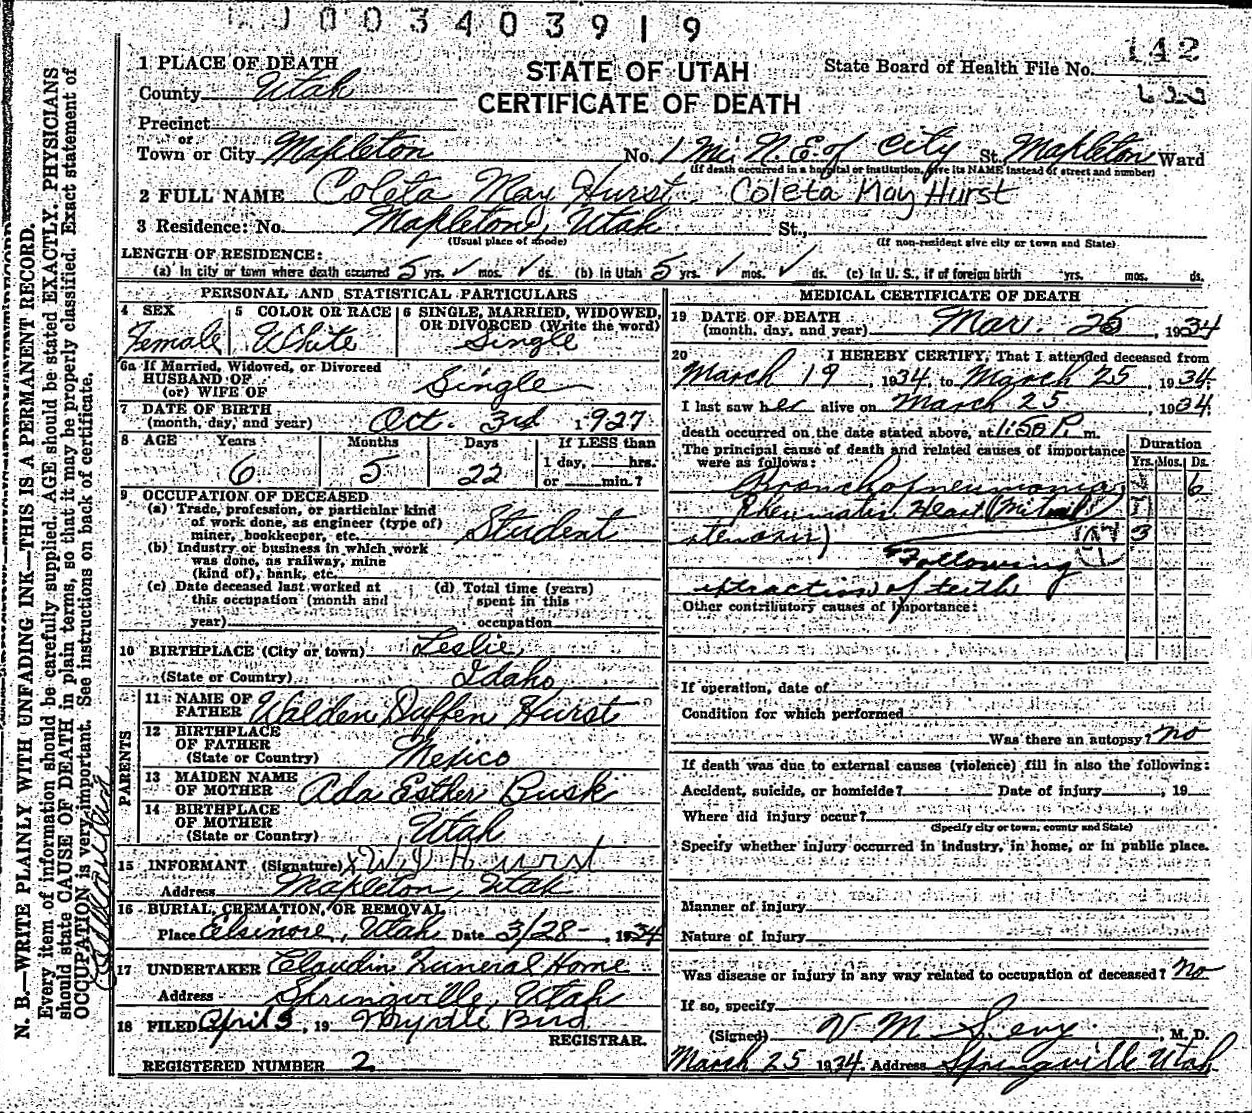 0 0 3 4 0 3 9 1 9
142
1 PLACE OF DEATH
County Utah
STATE OF UTAH
CERTIFICATE OF DEATH
State Board of Health File No.
Precinct
or
Town or City Mapleton No. 1 Mi. N.E. of City St. Mapleton Ward
(If death occurred in a hospital or institution, give its NAME instead of street and number)
2 FULL NAME Coleta May Hurst Coleta May Hurst
3 Residence: No. Mapleton, Utah St.,
(Usual place of abode) (If non-resident give city or town and State)
LENGTH OF RESIDENCE:
(a) In city or town where death occurred 5 yrs. ✓ mos. ✓ ds. (b) In Utah 5 yrs. ✓ mos. ✓ ds. (c) In U. S., if of foreign birth yrs. mos. ds.
PERSONAL AND STATISTICAL PARTICULARS
4 SEX
Female
5 COLOR OR RACE
White
6 SINGLE, MARRIED, WIDOWED, OR DIVORCED (Write the word)
Single
6a If Married, Widowed, or Divorced
HUSBAND OF
(or) WIFE OF
Single
7 DATE OF BIRTH
(month, day, and year) Oct. 3rd 1927
8 AGE Years Months Days If LESS than
6 5 22 1 day, hrs.
or min.?
9 OCCUPATION OF DECEASED
(a) Trade, profession, or particular kind
of work done, as engineer (type of)
miner, bookkeeper, etc. Student
(b) Industry or business in which work
was done, as railway, mine
(kind of), bank, etc.
(c) Date deceased last worked at
this occupation (month and
year)
(d) Total time (years)
spent in this
occupation
10 BIRTHPLACE (City or town) Leslie,
(State or Country) Idaho
PARENTS
11 NAME OF
FATHER Walden Duffen Hurst
12 BIRTHPLACE
OF FATHER
(State or Country) Mexico
13 MAIDEN NAME
OF MOTHER Ada Esther Busk
14 BIRTHPLACE
OF MOTHER
(State or Country) Utah
15 INFORMANT (Signature) X W D Hurst
Address Mapleton, Utah
16 BURIAL, CREMATION, OR REMOVAL
Place Elsinore, Utah Date 3/28-, 1934
17 UNDERTAKER Claudin Funeral Home
Address Springville, Utah
18 FILED April 3, 19 Myrtle Bird
REGISTRAR.
REGISTERED NUMBER 2
MEDICAL CERTIFICATE OF DEATH
19 DATE OF DEATH
(month, day, and year) Mar. 25, 1934
20 I HEREBY CERTIFY, That I attended deceased from
March 19, 1934, to March 25, 1934.
I last saw her alive on March 25, 1934.
death occurred on the date stated above, at 1:50 P. m.
The principal cause of death and related causes of importance
were as follows:
Duration
Yrs. Mos. Ds.
Bronchopneumonia 6
Rheumatic Heart (Mitral
stenosis) 3
Following
extraction of teeth
Other contributory causes of importance:
If operation, date of
Condition for which performed
Was there an autopsy? no
If death was due to external causes (violence) fill in also the following:
Accident, suicide, or homicide? Date of injury , 19
Where did injury occur?
(Specify city or town, county and State)
Specify whether injury occurred in industry, in home, or in public place.
Manner of injury
Nature of injury
Was disease or injury in any way related to occupation of deceased? No
If so, specify
(Signed) V M Sevy, M. D.
March 25 1934. Address Springville Utah
N. B.—WRITE PLAINLY WITH UNFADING INK—THIS IS A PERMANENT RECORD.
Every item of information should be carefully supplied. AGE should be stated EXACTLY. PHYSICIANS
should state CAUSE OF DEATH in plain terms, so that it may be properly classified. Exact statement of
OCCUPATION is very important. See instructions on back of certificate.